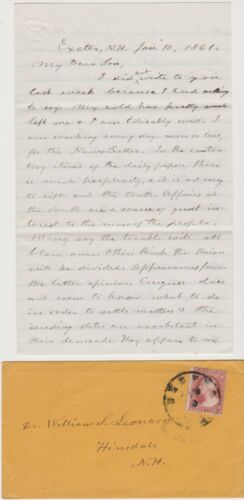 Exeter, N.H. Jan. 10, 1861.
My Dear Son,
I did not write to you
last week because I had nothing
to say. My cold has pretty much
left me & I am tolerably well. I
am working every day, more or less,
for the News Letter. In the contra-
dictory items of the daily paper, there is
much perplexity, & it is not easy
to sift out the truth. Affairs at
the South are a source of great in-
terest to the mass of the people.
Many say the trouble will all
blow over. Others think the Union
will be divided. Appearances favor
the latter opinion. Congress does
not seem to know what to do
in order to settle matters & the
seceding states are exorbitant in
their demands. They appear to me
Dr. William S. Leonard
Hinsdale
N.H.